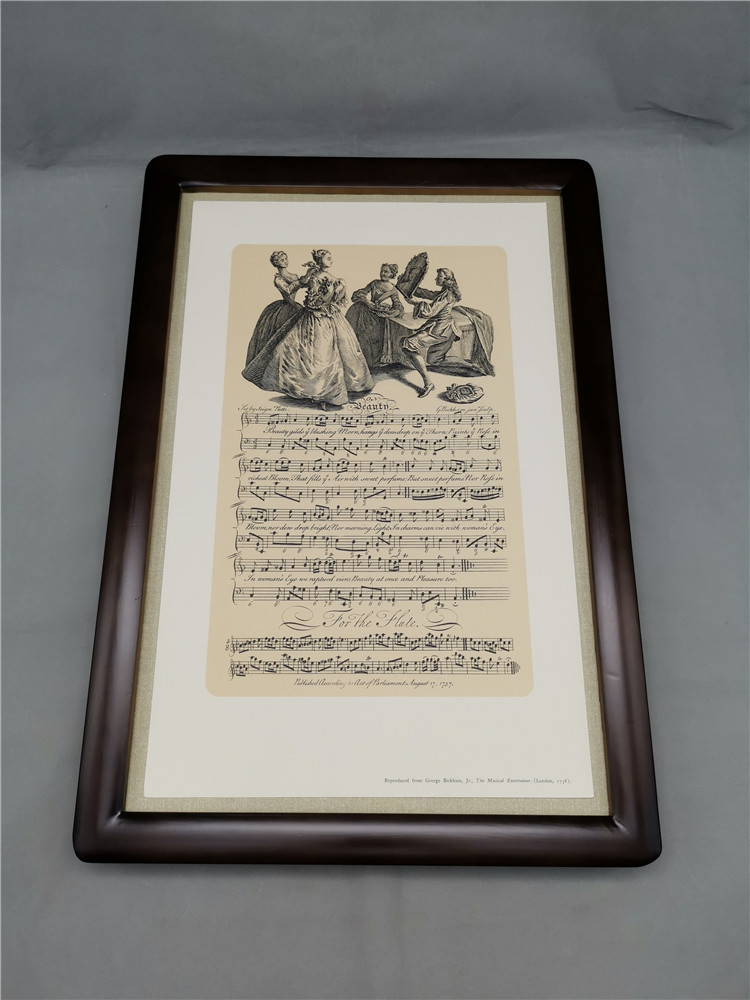 Beauty.
Set by Sigr.
G. Bickham jun. Sculp.
Beauty gilds ỹ blushing Morn, hangs ỹ dew drop on ỹ Thorn, Paints ỹ Rose in
richest Bloom, That fills ỹ Air with sweet perfume; But sweet perfume Nor Rose in
Bloom, nor dew drop bright, Nor morning Light, In charms can vie with woman's Eye.
In woman's Eye we raptur'd view, Beauty at once and Pleasure too.
For the Flute.
Published According to Act of Parliament, August 17, 1737.
Reproduced from George Bickham, Jr., The Musical Entertainer (London, 1738).